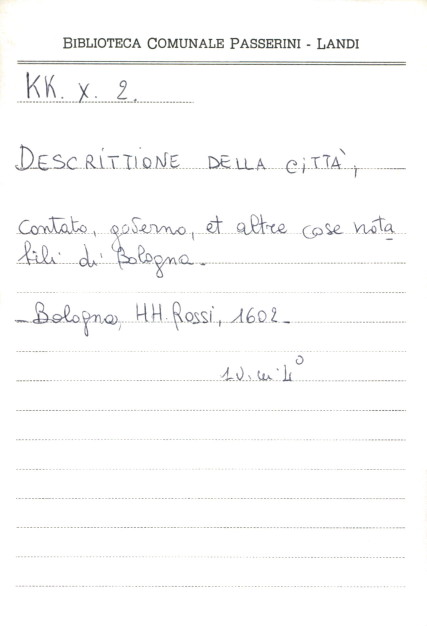 BIBLIOTECA COMUNALE PASSERINI - LANDI
KK. X. 2.
DESCRITTIONE DELLA CITTÀ,
contato, governo, et altre cose nota
bili di Bologna.
- Bologna, HH. Rossi, 1602 -
1 v. in 4°